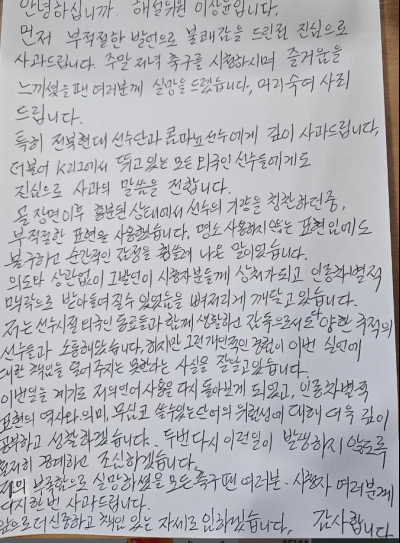 안녕하십니까. 해설위원 이상윤입니다.
먼저 부적절한 발언으로 불쾌감을 드린점 진심으로
사과드립니다. 주말 저녁 축구를 시청하시며 즐거움을
느끼셨을 팬 여러분께 실망을 드렸습니다, 머리숙여 사죄
드립니다.
특히 전북현대 선수단과 콤파뇨 선수에게 깊이 사과드립니다,
더불어 K리그에서 뛰고 있는 모든 외국인 선수들에게도
진심으로 사과의 말씀을 전합니다.
골 장면이후 흥분된 상태에서 선수의 기량을 칭찬하던중,
부적절한 표현을 사용했습니다. 평소 사용하지 않는 표현임에도
불구하고 순간적인 감정을 휩쓸려 나온 말이었습니다.
의도와 상관없이 그 발언이 시청자분들께 상처가되고 인종차별적
맥락으로 받아들여질수 있었음을 뼈저리게 깨닫고 있습니다.
저는 선수시절 외국인 동료들과 함께 생활하고 감독으로서도 다양한 국적의
선수들과 소통해왔습니다, 하지만 그런 개인적인 경험이 이번 실언에
대한 책임을 덜어주지는 못한다는 사실을 잘알고있습니다.
이번일을 계기로 저의 언어사용을 다시 돌아보게 되었고, 인종차별적
표현의 역사와 의미, 무심코 쓸수있는단어의 위험성에 대해 더욱 깊이
공부하고 성찰하겠습니다. 두번다시 이런일이 발생하지 않도록
철저히 경계하고 조심하겠습니다.
저의 부족함으로 실망하셨을 모든 축구팬 여러분·시청자 여러분께
다시한번 사과드립니다.
앞으로 더 신중하고 책임 있는 자세로 임하겠습니다, 감사합니다